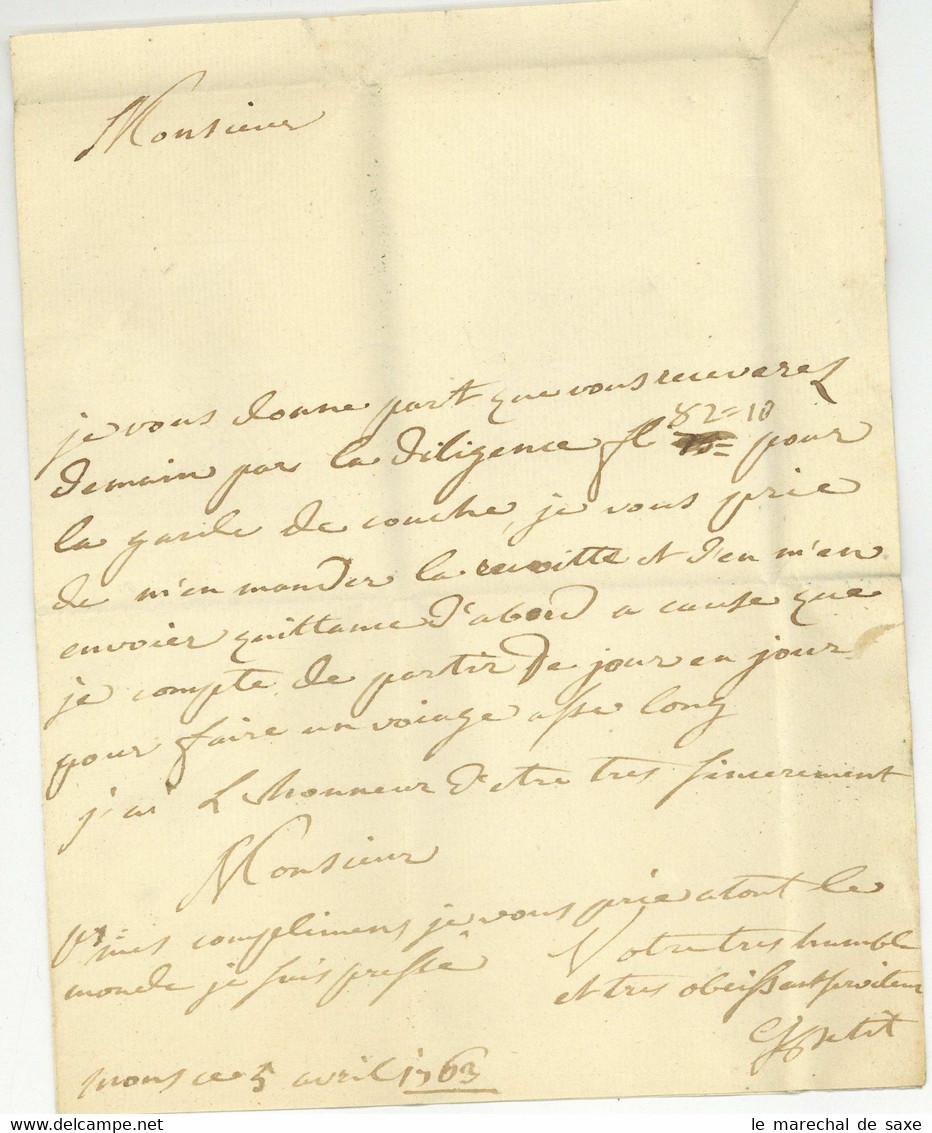 Monsieur
je vous donne part que vous recevares
82=10
demain par la diligence fl pour
la garde de couche, je vous prie
de m'en mander la recoitte et d'en m'en
envoier quittance d'abord a cause que
je compte de partir de jour en jour
pour faire un voiage asse long
j'ai L'honneur d'etre tres sincerement
Monsieur
ps= mes complimens je vous prie a tout le
monde je suis pressé
Votre tres humble
et tres obeissant serviteur
Petit
mons ce 5 avril 1763
le marechal de saxe